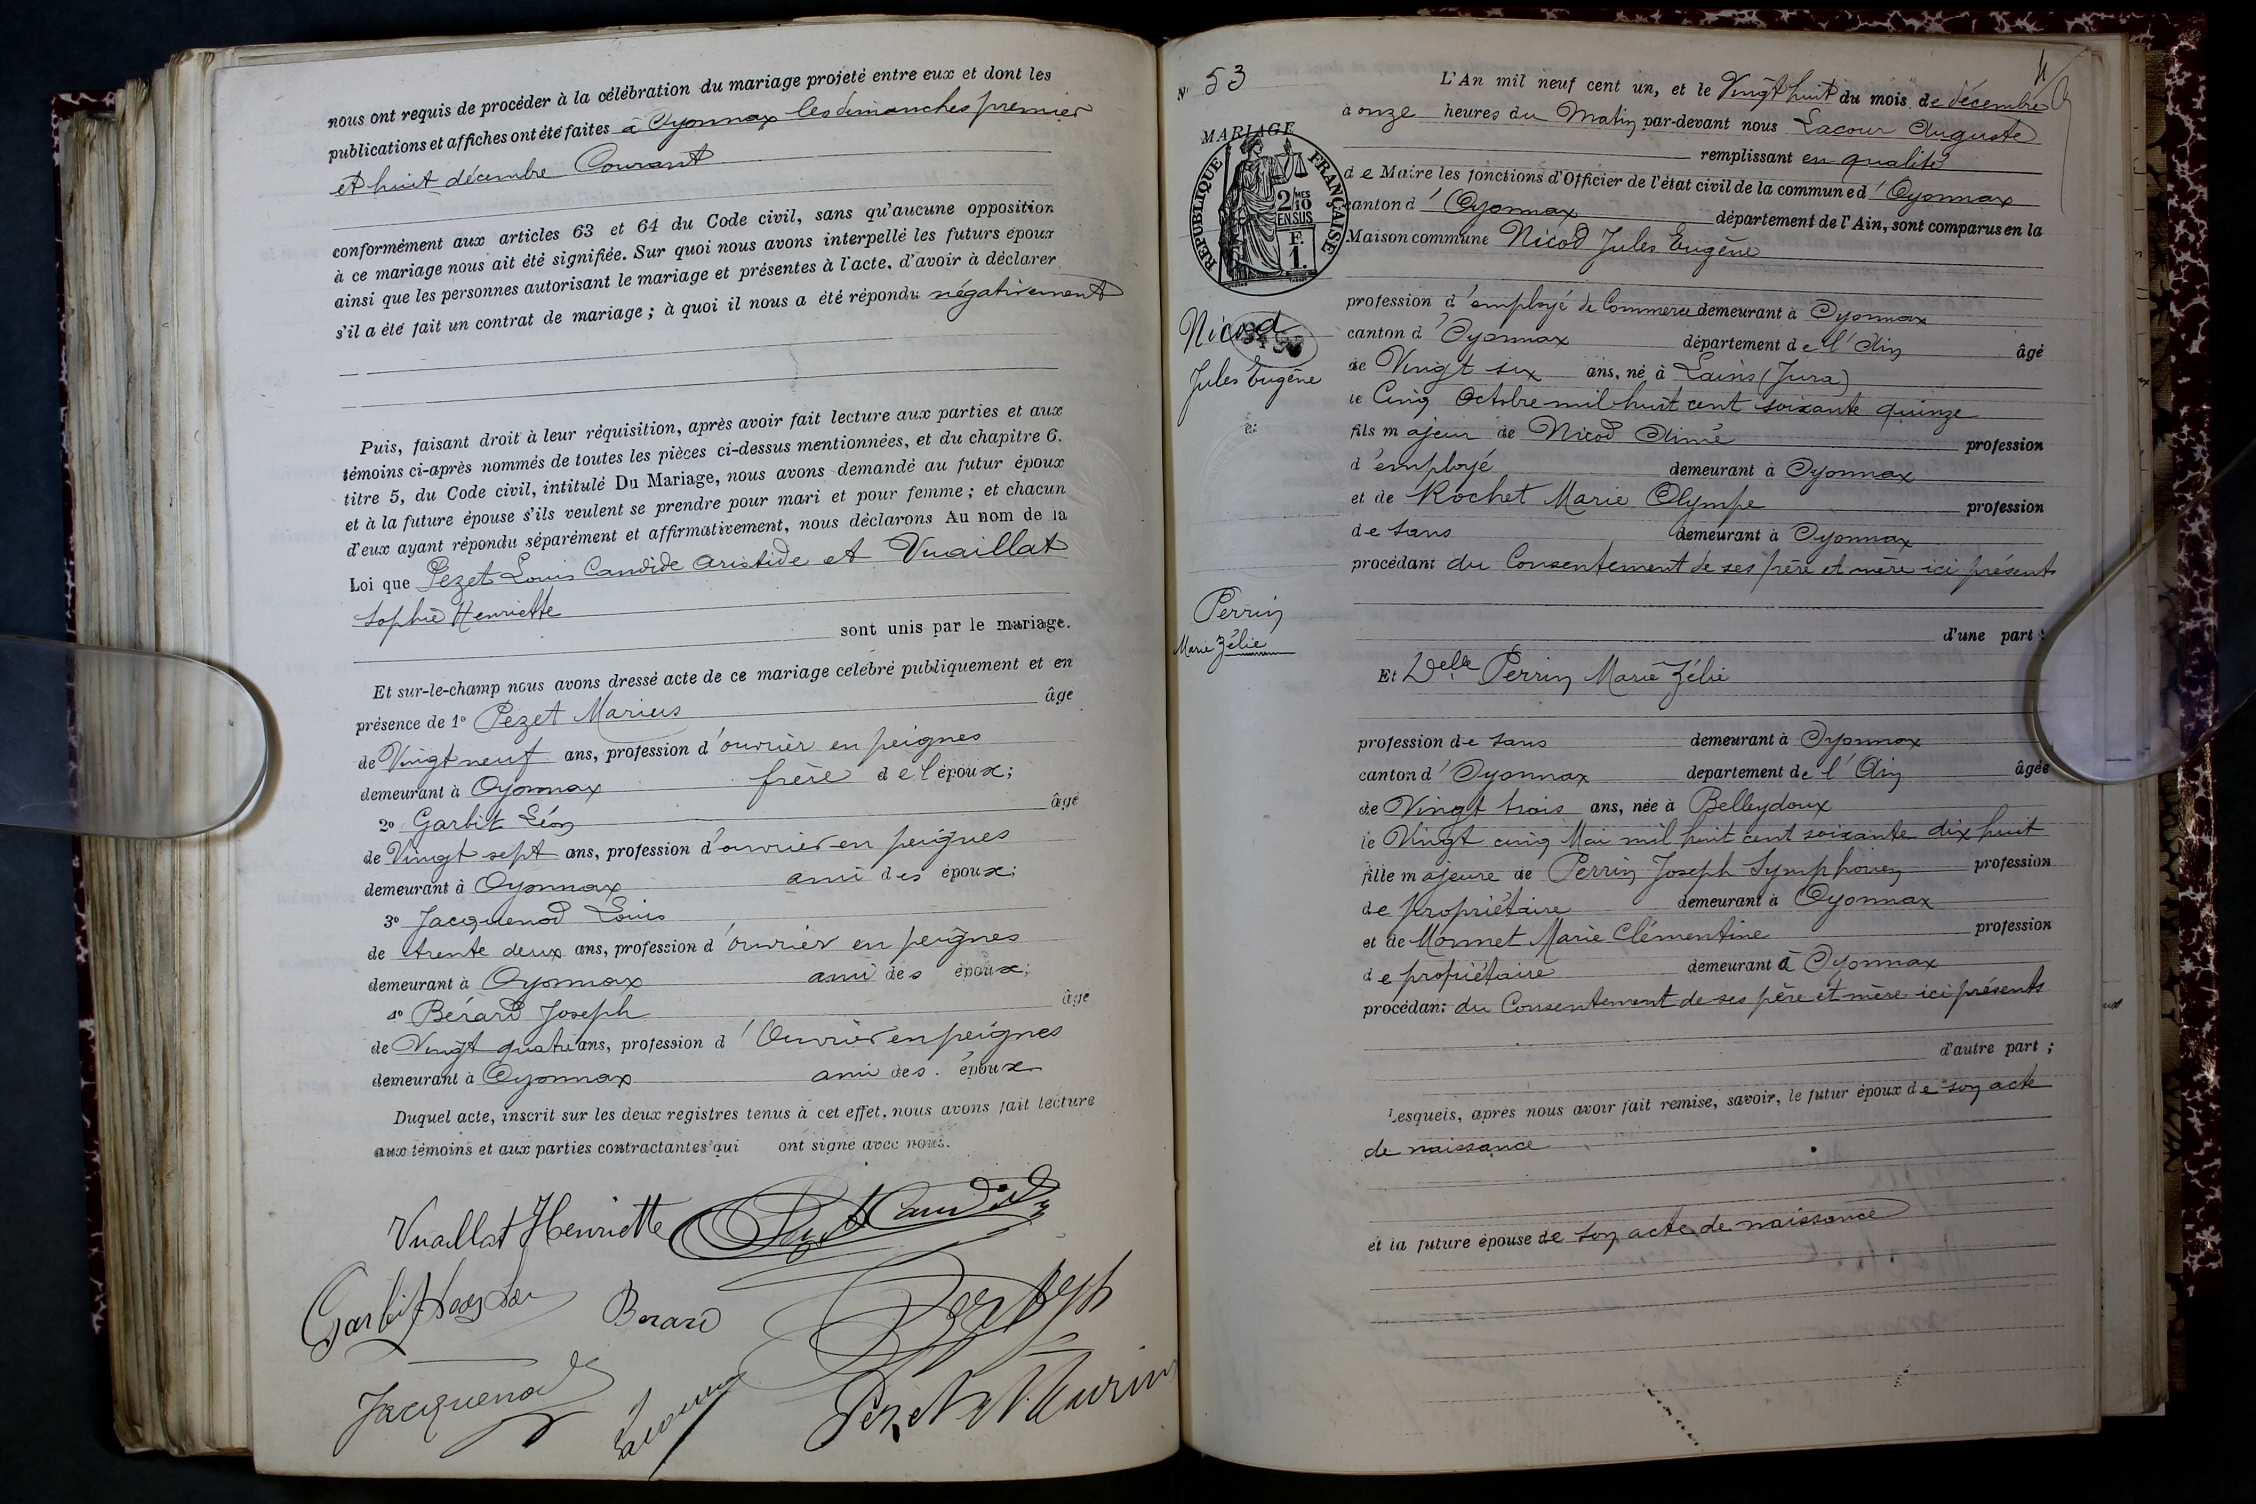 nous ont requis de procéder à la célébration du mariage projeté entre eux et dont les
publications et affiches ont été faites à Oyonnax les dimanches premier
et huit décembre Courant
conformément aux articles 63 et 64 du Code civil, sans qu'aucune opposition
à ce mariage nous ait été signifiée. Sur quoi nous avons interpellé les futurs époux
ainsi que les personnes autorisant le mariage et présentes à l'acte, d'avoir à déclarer
s'il a été fait un contrat de mariage ; à quoi il nous a été répondu négativement
Puis, faisant droit à leur réquisition, après avoir fait lecture aux parties et aux
témoins ci-après nommés de toutes les pièces ci-dessus mentionnées, et du chapitre 6,
titre 5, du Code civil, intitulé Du Mariage, nous avons demandé au futur époux
et à la future épouse s'ils veulent se prendre pour mari et pour femme ; et chacun
d'eux ayant répondu séparément et affirmativement, nous déclarons Au nom de la
Loi que Pezet Louis Candide Aristide et Vuaillat
Sophie Henriette
sont unis par le mariage.
Et sur-le-champ nous avons dressé acte de ce mariage célébré publiquement et en
présence de 1° Pezet Marius âge
de Vingt neuf ans, profession d'ouvrier en peignes
demeurant à Oyonnax frère de l'époux ;
2° Garbit Léon âgé
de Vingt sept ans, profession d'ouvrier en peignes
demeurant à Oyonnax ami des époux ;
3° Jacquenod Louis
de trente deux ans, profession d'ouvrier en peignes
demeurant à Oyonnax ami des époux ;
4° Bérard Joseph âgé
de Vingt quatre ans, profession d'Ouvrier en peignes
demeurant à Oyonnax ami des époux
Duquel acte, inscrit sur les deux registres tenus à cet effet, nous avons fait lecture
aux témoins et aux parties contractantes qui ont signé avec nous.
Vuaillat Henriette
Garbit
Berard
Jacquenod
N° 53
MARIAGE
RÉPUBLIQUE FRANÇAISE
2 MES
10
EN SUS
F.
1.
Nicod
Jules Eugène
et
Perrin
Marie Zélie
L'An mil neuf cent un, et le Vingt huit du mois de décembre
à onze heures du Matin par-devant nous Lacour Auguste
remplissant en qualité
de Maire les fonctions d'Officier de l'état civil de la commune d'Oyonnax
canton d'Oyonnax département de l'Ain, sont comparus en la
Maison commune Nicod Jules Eugène
profession d'employé de Commerce demeurant à Oyonnax
canton d'Oyonnax département de l'Ain âgé
de Vingt six ans, né à Lains (Jura)
le Cinq Octobre mil huit cent soixante quinze
fils majeur de Nicod Aimé profession
d'employé demeurant à Oyonnax
et de Rochet Marie Olympe profession
de sans demeurant à Oyonnax
procédant du Consentement de ses père et mère ici présents
d'une part ;
Et Delle Perrin Marie Zélie
profession de sans demeurant à Oyonnax
canton d'Oyonnax département de l'Ain âgée
de Vingt trois ans, née à Belleydoux
le Vingt cinq Mai mil huit cent soixante dix huit
fille majeure de Perrin Joseph Symphorien profession
de propriétaire demeurant à Oyonnax
et de Monnet Marie Clémentine profession
de propriétaire demeurant à Oyonnax
procédant du Consentement de ses père et mère ici présents
d'autre part ;
Lesquels, après nous avoir fait remise, savoir, le futur époux de son acte
de naissance
et la future épouse de son acte de naissance